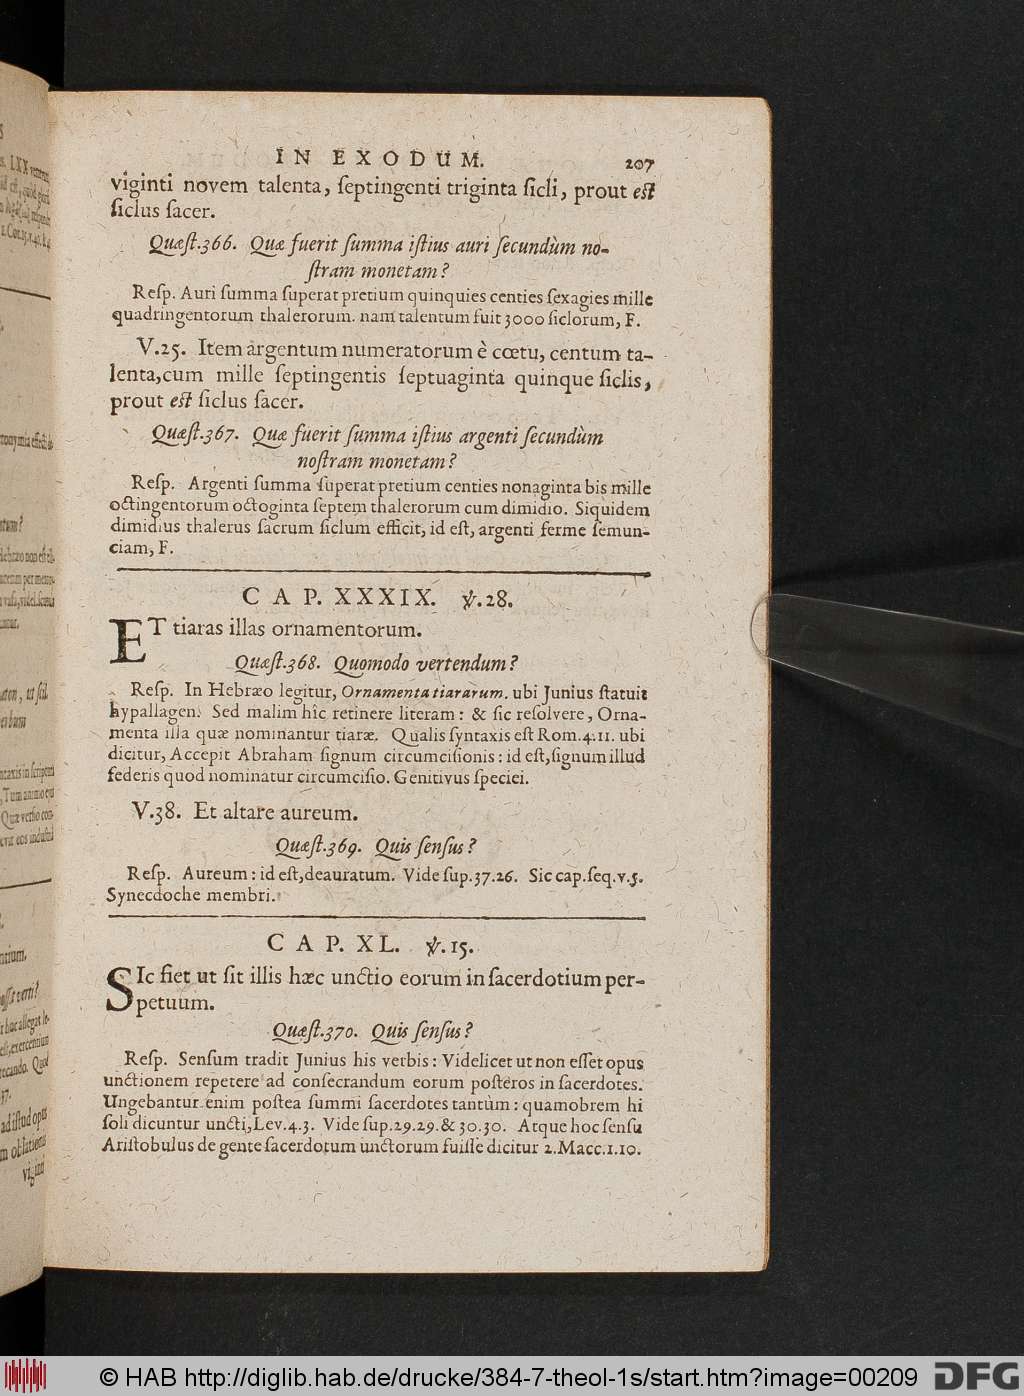 IN EXODUM. 207
viginti novem talenta, ſeptingenti triginta ſicli, prout eſt
ſiclus ſacer.
Quæſt.366. Quæ fuerit ſumma iſtius auri ſecundùm no-
ſtram monetam?
Reſp. Auri ſumma ſuperat pretium quinquies centies ſexagies mille
quadringentorum thalerorum. nam talentum fuit 3000 ſiclorum, F.
V.25. Item argentum numeratorum è cœtu, centum ta-
lenta, cum mille ſeptingentis ſeptuaginta quinque ſiclis,
prout eſt ſiclus ſacer.
Quæſt.367. Quæ fuerit ſumma iſtius argenti ſecundùm
noſtram monetam?
Reſp. Argenti ſumma ſuperat pretium centies nonaginta bis mille
octingentorum octoginta ſeptem thalerorum cum dimidio. Siquidem
dimidius thalerus ſacrum ſiclum efficit, id eſt, argenti ferme ſemun-
ciam, F.
CAP. XXXIX. ℣.28.
ET tiaras illas ornamentorum.
Quæſt.368. Quomodo vertendum?
Reſp. In Hebræo legitur, Ornamenta tiararum. ubi Junius ſtatuit
hypallagen. Sed malim hîc retinere literam: & ſic reſolvere, Orna-
menta illa quæ nominantur tiaræ. Qualis ſyntaxis eſt Rom.4.11. ubi
dicitur, Accepit Abraham ſignum circumciſionis: id eſt, ſignum illud
federis quod nominatur circumciſio. Genitivus ſpeciei.
V.38. Et altare aureum.
Quæſt.369. Quis ſenſus?
Reſp. Aureum: id eſt, deauratum. Vide ſup.37.26. Sic cap.ſeq.v.5.
Synecdoche membri.
CAP. XL. ℣.15.
SIc fiet ut ſit illis hæc unctio eorum in ſacerdotium per-
petuum.
Quæſt.370. Quis ſenſus?
Reſp. Senſum tradit Junius his verbis: Videlicet ut non eſſet opus
unctionem repetere ad conſecrandum eorum poſteros in ſacerdotes.
Ungebantur enim poſtea ſummi ſacerdotes tantùm: quamobrem hi
ſoli dicuntur uncti, Lev.4.3. Vide ſup.29.29. & 30.30. Atque hoc ſenſu
Ariſtobulus de gente ſacerdotum unctorum fuiſſe dicitur 2.Macc.1.10.
© HAB http://diglib.hab.de/drucke/384-7-theol-1s/start.htm?image=00209
DFG